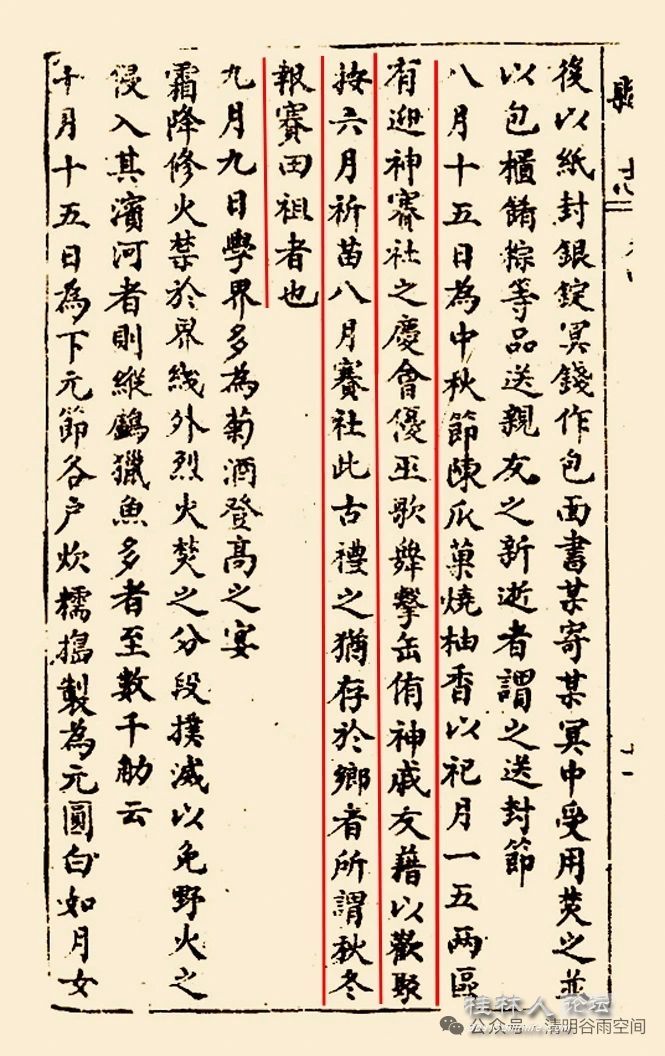 後以紙封銀錠冥錢作包面書某寄某冥中受用焚之並
以包櫃餚粽等品送親友之新逝者謂之送封節
八月十五日為中秋節陳瓜菓燒柚香以祀月一五兩區
有迎神賽社之慶會優巫歌舞擊缶侑神戚友藉以歡聚
按六月祈苗八月賽社此古禮之猶存於鄉者所謂秋冬
報賽田祖者也
九月九日學界多為菊酒登高之宴
霜降修火禁於界綫外烈火焚之分段撲滅以免野火之
侵入其濱河者則縱鸕獵魚多者至數千觔云
十月十五日為下元節各户炊糯搗製為元圓白如月女
縣
桂林人论坛
公众号 · 清明谷雨空间